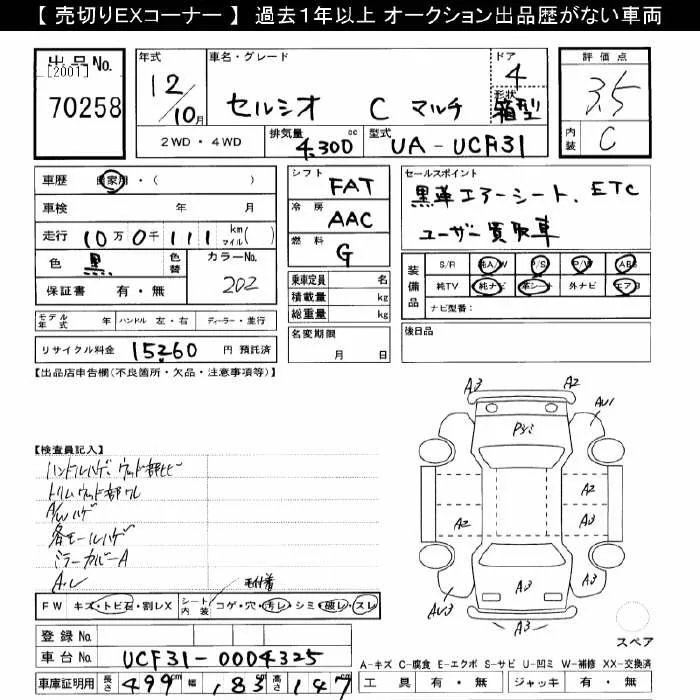 【 売切りEXコーナー 】 過去1年以上 オークション出品歴がない車両
出品No.
[2001]
70258
年式
12/10月
車名・グレード
セルシオ C マルチ
ドア
4
形状
箱型
2WD・4WD
排気量
4.300 cc
型式
UA-UCF31
評価点
3.5
内装
C
車歴 自家用・( )
車検 年 月
走行 10万0千111 km マイル( )
色 黒 色替
カラーNo. 202
保証書 有・無
シフト FAT
冷房 AAC
燃料 G
乗車定員 名
積載量 kg
総重量 kg
名変期限
月 日
セールスポイント
黒革エアーシート、ETC
ユーザー買取車
装備品
S/R 純A/W P/S P/W ABS
純TV 純ナビ 革シート 外ナビ エアB
ナビ型番:
後日品
モデル年式 年 ハンドル 左・右 ディーラー・並行
リサイクル料金 15260 円 預託済
【出品店申告欄(不良箇所・欠品・注意事項等)】
【検査員記入】
ハンドルハゲ、ウッド部ヒビ
トリムウッド部ワレ
A/Wハゲ
各モールハゲ
ミラーカバーA
A・U
毛付着
FW キズ・トビ石・割レX シート内装 コゲ・穴・汚レ・シミ・破レ・スレ
登録No.
車台No. UCF31-0004325
車庫証明用 長さ 499 cm 幅 183 cm 高さ 147 cm
A3
A2
AU1
Pシミ
A2
A2
A2
A3
AU3
A3
A3
スペア
A-キズ C-腐食 E-エクボ S-サビ U-凹ミ W-補修 XX-交換済
工具 有・無 ジャッキ 有・無